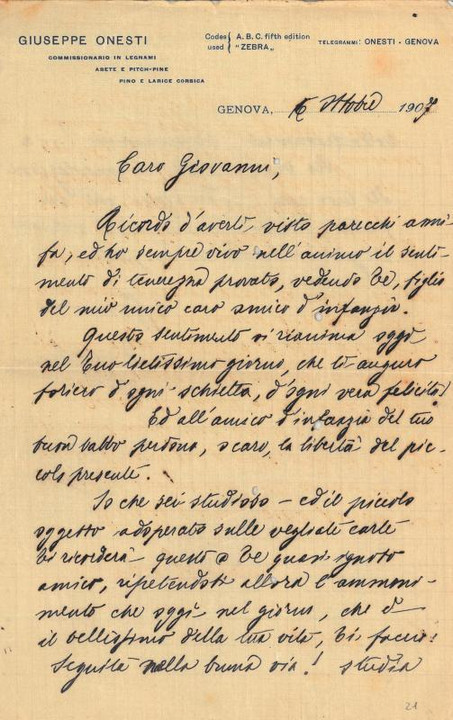 GIUSEPPE ONESTI
COMMISSIONARIO IN LEGNAMI
ABETE E PITCH-PINE
PINO E LARICE CORSICA
Codes used { A. B. C. fifth edition
"ZEBRA"
TELEGRAMMI: ONESTI - GENOVA
GENOVA, Ottobre 1907
Caro Giovanni,
Ricordo d'averti visto parecchi anni
fa, ed ho sempre vivo nell'animo il senti-
mento di tenerezza provato, vedendo te, figlio
del mio unico caro amico d'infanzia.
Questo sentimento si rianima oggi
nel tuo lietissimo giorno, che ti auguro
foriero d'ogni schietta, d'ogni vera felicità!
Ed all'amico d'infanzia del tuo
buon babbo perdona, o caro, la libertà del pic-
colo presente.
So che sei studioso – ed il piccolo
oggetto adoperato sulle vegliate carte
ti ricorderà questo a te quasi ignoto
amico, ripetendoti allora l'ammoni-
mento che oggi nel giorno, che è
il bellissimo della tua vita, ti faccio:
Seguita nella buona via! studia
21